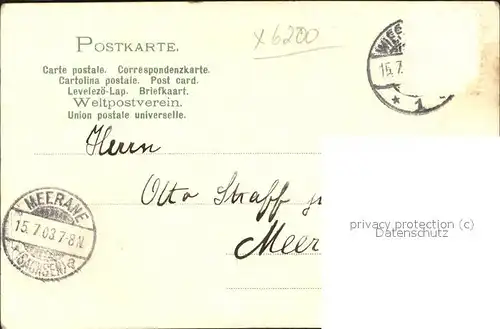 x 6200
POSTKARTE.
Carte postale. Correspondenzkarte.
Cartolina postale. Post card.
Levelező-Lap. Briefkaart.
Weltpostverein.
Union postale universelle.
15.7.
* 1
Herrn
Otto Straff
Meer
MEERANE
15.7.03.7-8N.
(SACHSEN) a
privacy protection (c)
Datenschutz